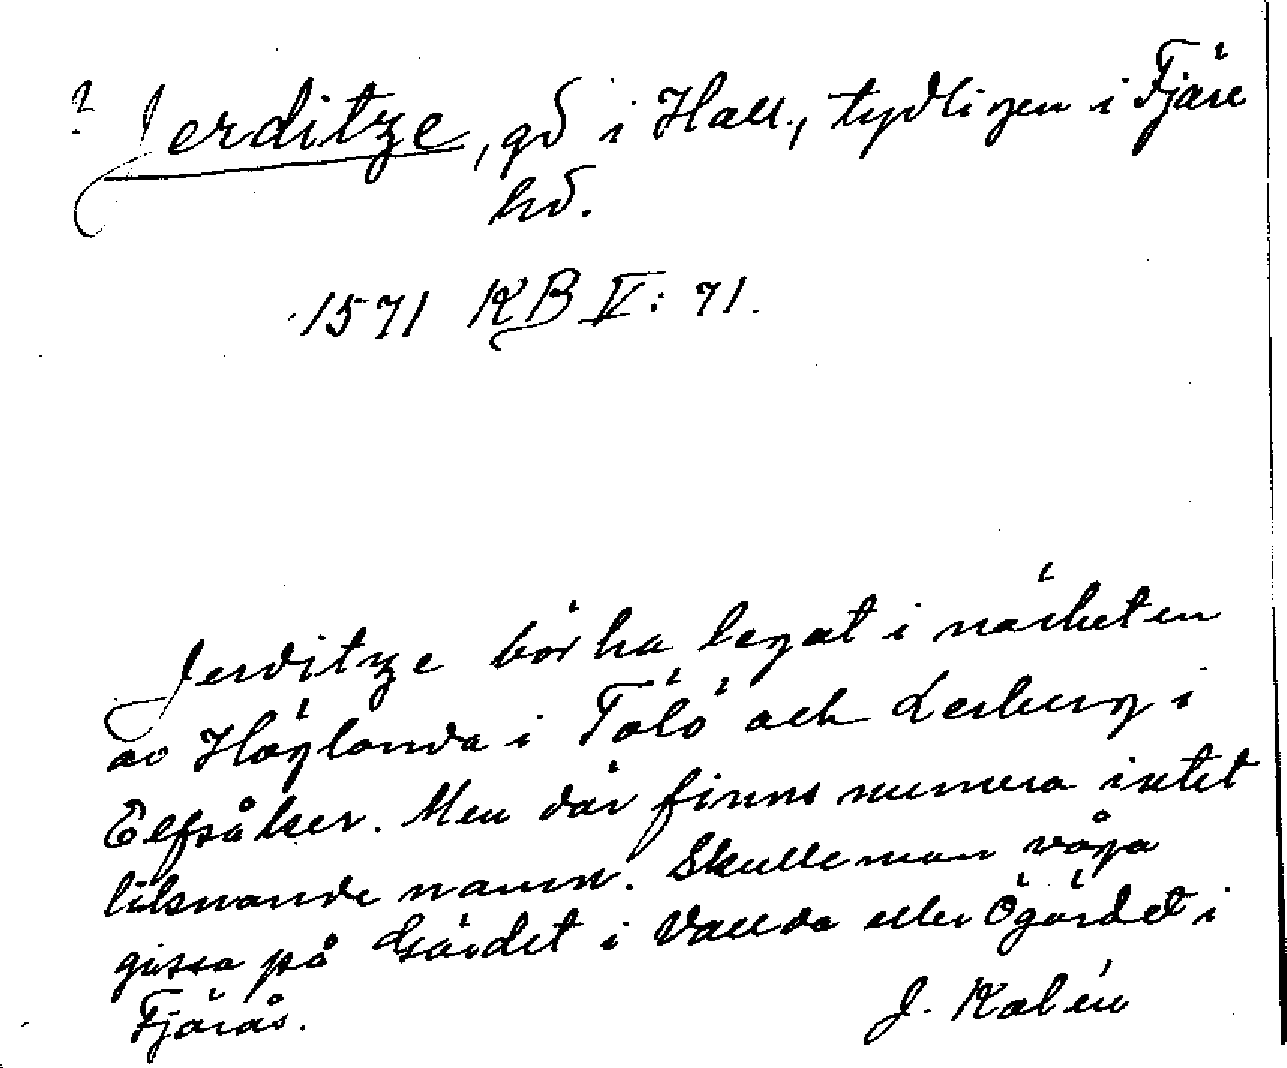 ? Jerditze, gd i Hall., tydligen i Fjäre
hd.
1571 KB V: 71.
Jerditze bör ha legat i närheten
av Höglanda i Tölö och Lerberg i
Elfsåker. Men där finns numera intet
liknande namn. Skulle man våga
gissa på Gärdet i Vallda eller Ögärdet i
Fjärås.
J. Kalén